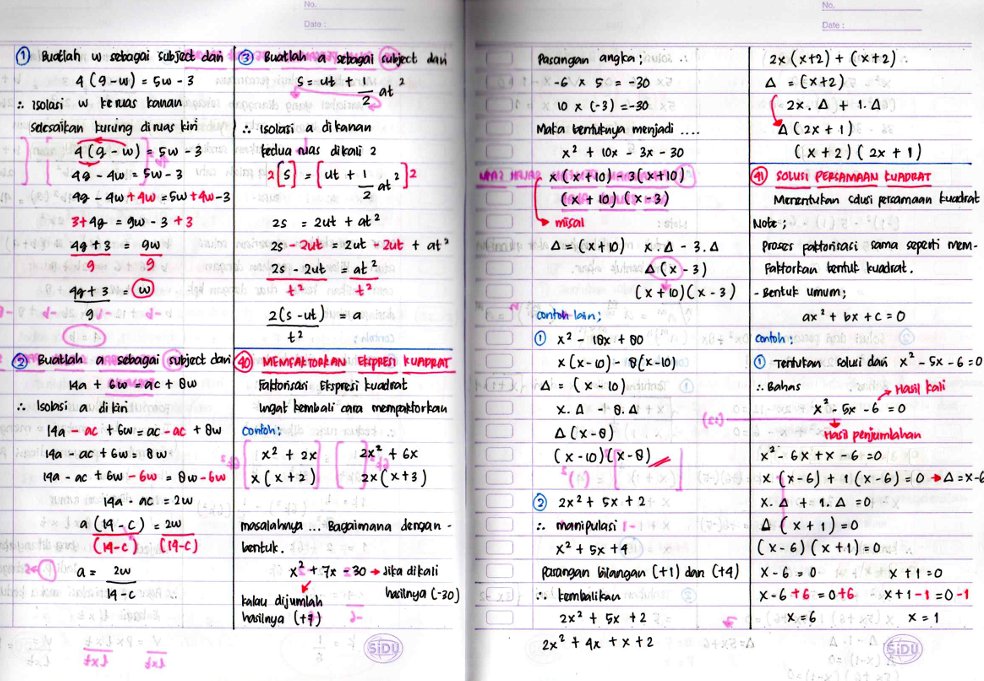 No.
Date :
① Buatlah w sebagai subject dari
4 (g - w) = 5w - 3
∴ Isolasi w ke ruas kanan
Selesaikan kurung di ruas kiri
4 (g - w) = 5w - 3
4g - 4w = 5w - 3
4g - 4w + 4w = 5w + 4w - 3
3 + 4g = 9w - 3 + 3
4g + 3 = 9w
9 9
4g + 3 = w
9
② Buatlah a sebagai subject dari
14a + 6w = ac + 8w
∴ Isolasi a di kiri
14a - ac + 6w = ac - ac + 8w
14a - ac + 6w = 8w
14a - ac + 6w - 6w = 8w - 6w
14a - ac = 2w
a (14 - c) = 2w
(14 - c) (14 - c)
a = 2w
14 - c
③ Buatlah a sebagai subject dari
s = ut + 1/2 at²
∴ Isolasi a di kanan
kedua ruas dikali 2
2[s] = [ut + 1/2 at²]2
2s = 2ut + at²
2s - 2ut = 2ut - 2ut + at²
2s - 2ut = at²
t² t²
2(s - ut) = a
t²
40 MEMFAKTORKAN EKSPRESI KUADRAT
Faktorisasi Ekspresi kuadrat
Ingat kembali cara mempaktorkan
Contoh:
x² + 2x 2x² + 6x
x (x + 2) 2x (x + 3)
masalahnya ... Bagaimana dengan -
bentuk.
x² + 7x - 30 → Jika dikali
hasilnya (-30)
kalau dijumlah
hasilnya (+7)
SiDU
Pasangan angka;
-6 x 5 = -30
10 x (-3) = -30
Maka bentuknya menjadi ....
x² + 10x - 3x - 30
x (x + 10) - 3 (x + 10)
(x + 10) (x - 3)
misal
Δ = (x + 10) x . Δ - 3 . Δ
Δ (x - 3)
(x + 10) (x - 3)
contoh lain;
① x² - 18x + 80
x (x - 10) - 8 (x - 10)
Δ = (x - 10)
x . Δ - 8 . Δ
Δ (x - 8)
(x - 10) (x - 8)
② 2x² + 5x + 2
∴ manipulasi
x² + 5x + 4
pasangan bilangan (+1) dan (+4)
∴ kembalikan
2x² + 5x + 2
2x² + 4x + x + 2
No.
Date :
2x (x+2) + (x+2)
Δ = (x+2)
2x . Δ + 1 . Δ
Δ (2x + 1)
(x + 2) (2x + 1)
41 SOLUSI PERSAMAAN KUADRAT
Menentukan solusi persamaan kuadrat
Note ;
Proses faktorisasi sama seperti mem-
Faktorkan bentuk kuadrat.
- Bentuk umum;
ax² + bx + c = 0
contoh :
① Tentukan solusi dari x² - 5x - 6 = 0
∴ Bahas
Hasil kali
x² - 5x - 6 = 0
Hasil penjumlahan
x² - 6x + x - 6 = 0
x (x - 6) + 1 (x - 6) = 0 → Δ = x - 6
x . Δ + 1 . Δ = 0
Δ (x + 1) = 0
(x - 6) (x + 1) = 0
x - 6 = 0 x + 1 = 0
x - 6 + 6 = 0 + 6 x + 1 - 1 = 0 - 1
x = 6 x = 1
SiDU